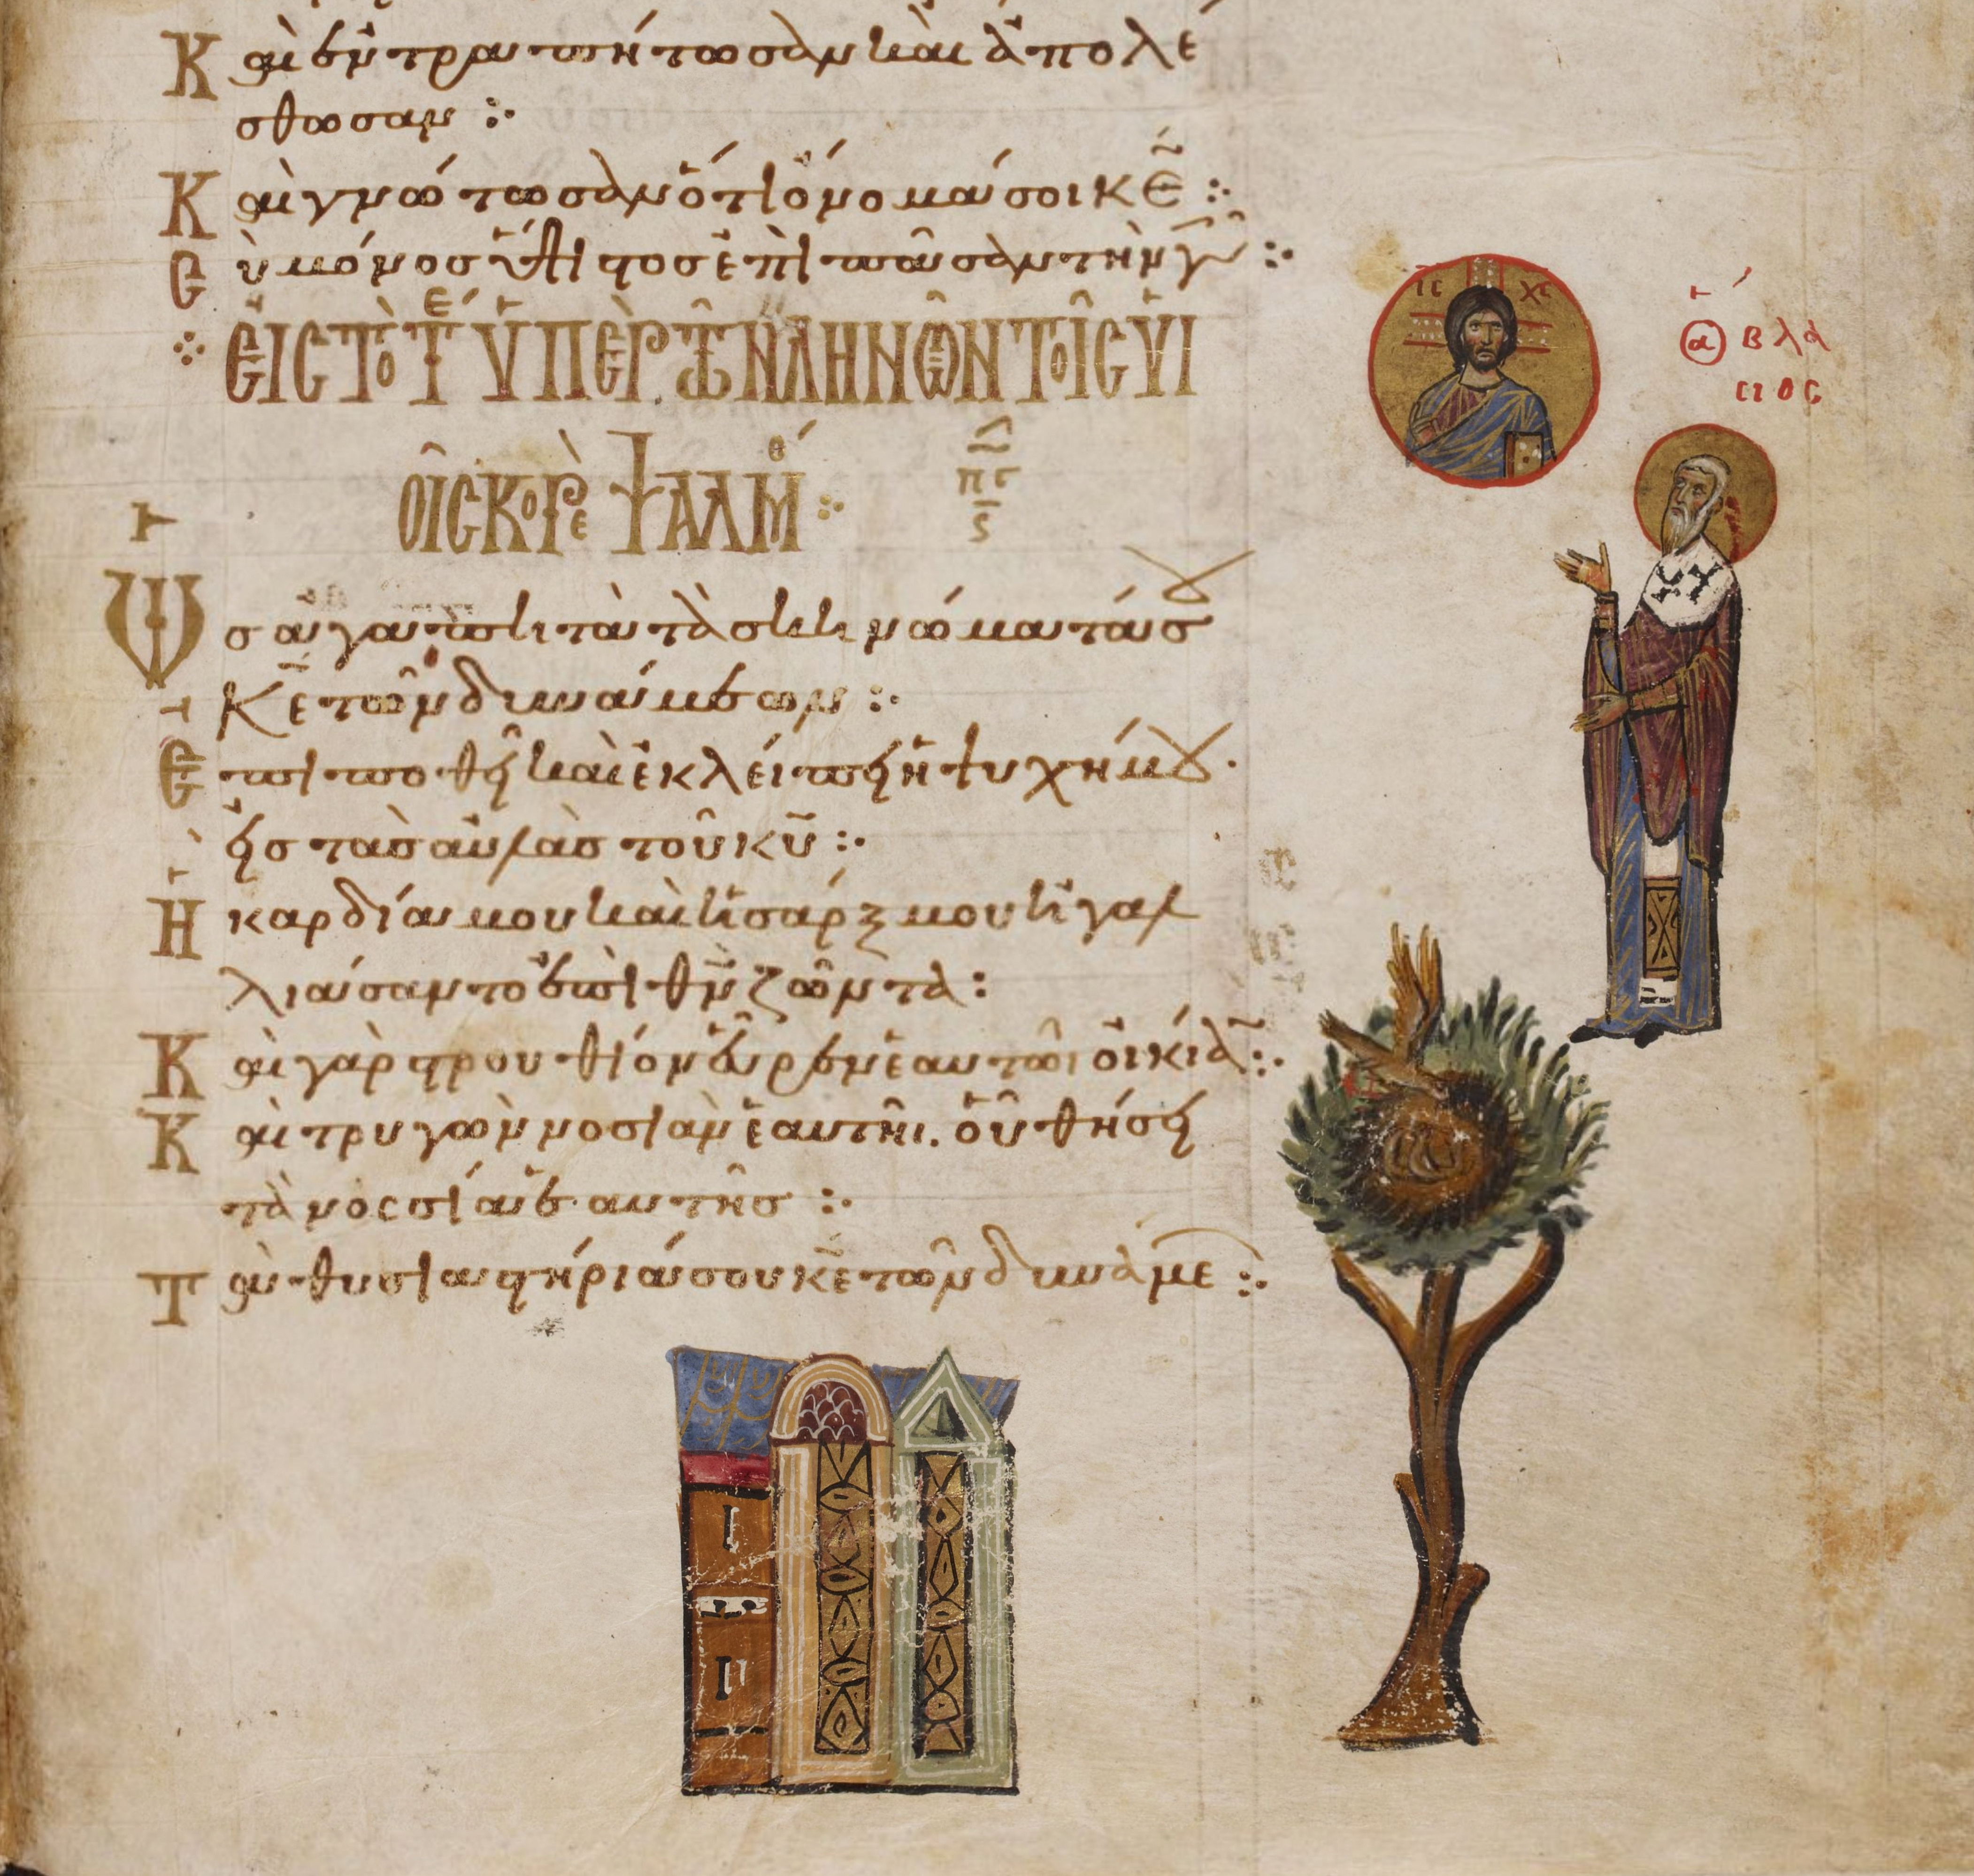 Καὶ ἐντραπήτωσαν καὶ ἀπολέ
σθωσαν :·
Καὶ γνώτωσαν ὅτι ὄνομά σοι κ̅ε̅ :·
Cὺ μόνος ὕψιστος ἐπὶ πᾶσαν τὴν γῆν :·
ΕἸC ΤῸ Τ ὙΠΕΡ ΤΩΝ ΛΗΝΩΝ ΤΟῖC ΥΙ
ΟῖC ΚΟΡΕ ΨΑΛΜ :·
πγ
Ὡς ἀγαπητὰ τὰ σκηνώματά σου
Κ̅ε̅ τῶν δυνάμεων :·
Ἐπιποθεῖ καὶ ἐκλείπει ἡ ψυχή μου·
εἰς τὰς αὐλὰς τοῦ κ̅υ̅ :·
Ἡ καρδία μου καὶ ἡ σάρξ μου ἠγαλ
λιάσαντο ἐπὶ θ̅ν̅ ζῶντα :
Καὶ γὰρ στρουθίον εὗρεν ἑαυτῶι οἰκίαν :·
Καὶ τρυγὼν νοσιὰν ἑαυτῆι. οὗ θήσει
τὰ νοσσία ἑαυτῆς :·
Τὰ θυσιαστήριά σου κ̅ε̅ τῶν δυνάμε :·
ΙC ΧC
ὁ ἅ Βλά
CΙΟC